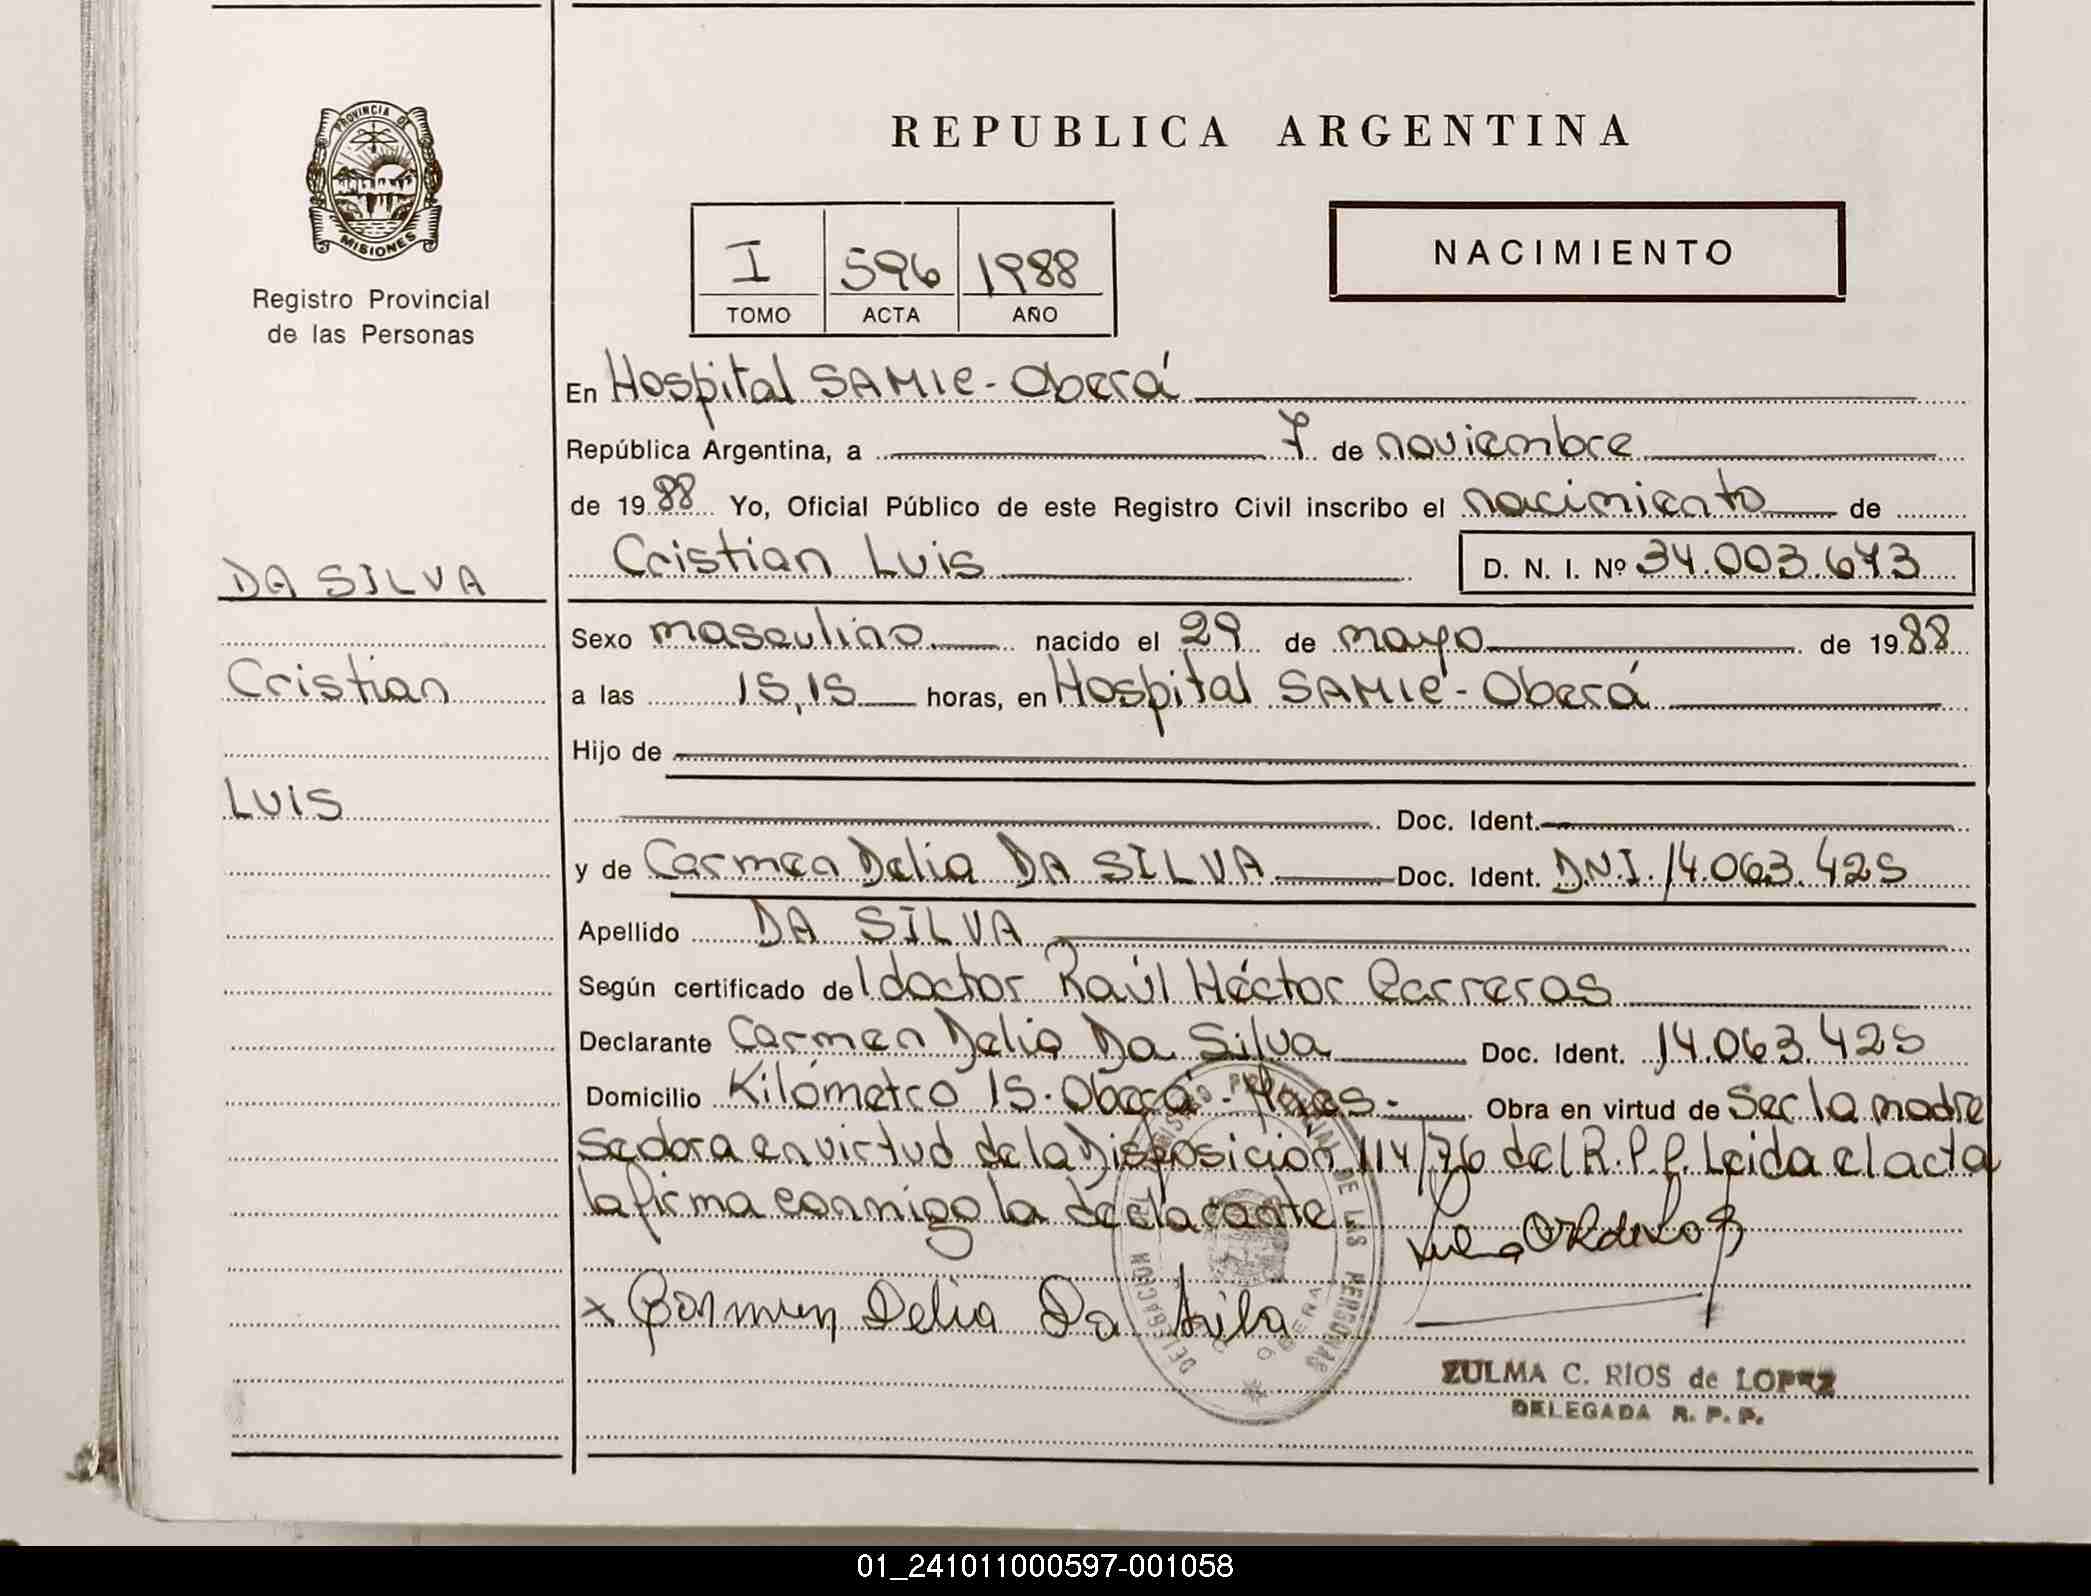 PROVINCIA DE
MISIONES
Registro Provincial
de las Personas
REPUBLICA ARGENTINA
I 596 1988
TOMO ACTA AÑO
NACIMIENTO
En Hospital SAMIC - Oberá
República Argentina, a 7 de noviembre
de 1988 Yo, Oficial Público de este Registro Civil inscribo el nacimiento de
Cristian Luis D. N. I. Nº 34.003.673
DA SILVA
Cristian
Luis
Sexo masculino nacido el 29 de mayo de 1988
a las 15,15 horas, en Hospital SAMIC - Oberá
Hijo de
Doc. Ident.
y de Carmen Delia DA SILVA Doc. Ident. D.N.I. 14.063.425
Apellido DA SILVA
Según certificado del doctor Raúl Héctor Carreras
Declarante Carmen Delia Da Silva Doc. Ident. 14.063.425
Domicilio Kilómetro 15. Oberá - Mnes - Obra en virtud de Ser la madre
Se labra en virtud de la Disposición 114/76 del R.P.P. Leída el acta
la firma conmigo la declarante
x Carmen Delia Da Silva
REGISTRO PROVINCIAL DE LAS PERSONAS
DELEGACION
OBERA
ZULMA C. RIOS de LOPEZ
DELEGADA R. P. P.
01_241011000597-001058